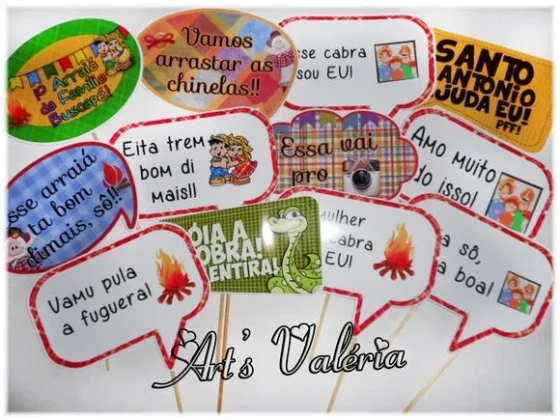 1º Arraiá
da Família
Buscapé!
Vamos
arrastar as
chinelas!!
sse cabra
sou EU!
SANTO
ANTONIO
JUDA EU!
PFF!
sse arraiá
ta bom
dimais, sô!!
Eita trem
bom di
mais!!
Essa vai
pro
Amo muito
do isso!
Vamu pula
a fuguera!
ÓIA A
OBRA!
ENTIRA!
ulher
cabra
EU!
a sô,
a boa!
Art's Valéria